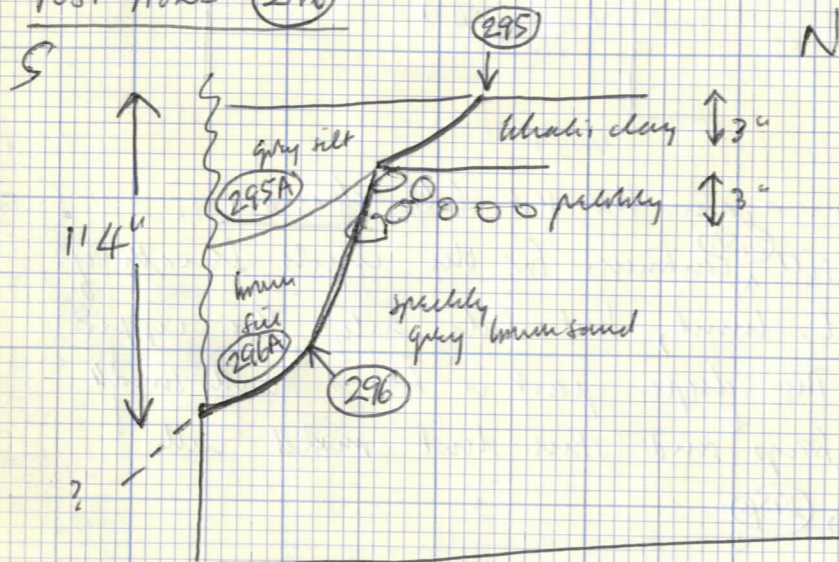 POST HOLE
S
N
295
grey silt
khaki clay
3"
295A
pebbly
3"
1'4"
brown
silt
296A
speckly
grey brown sand
296
?